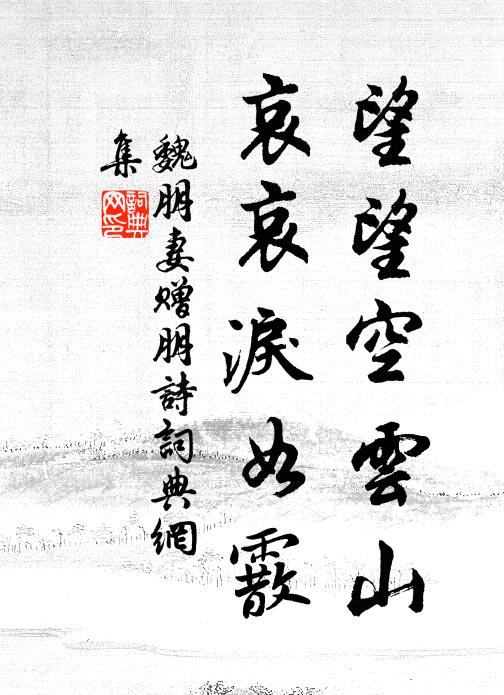 望望空雲山
哀哀淚如霰
魏朋妻贈朋詩詞典網
集
詞典
网印